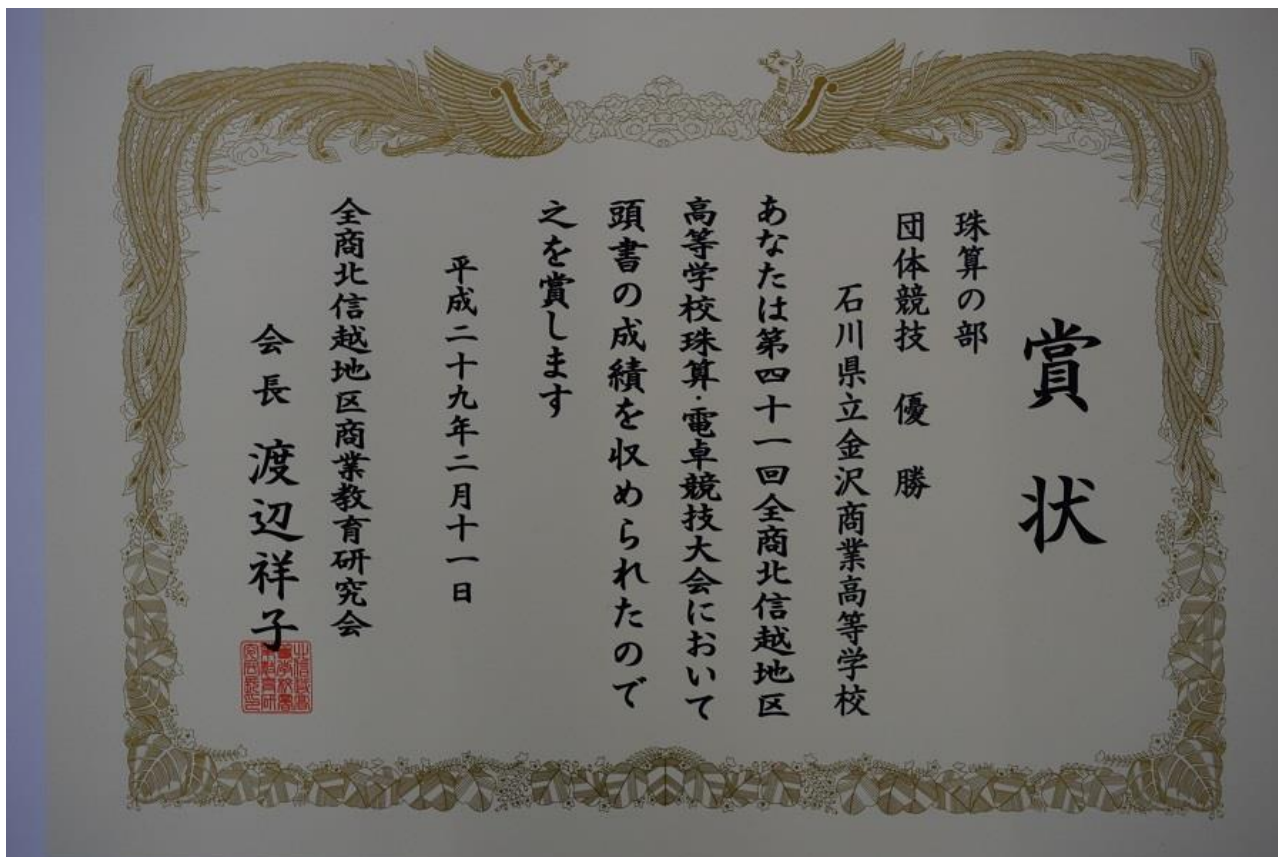 賞状
珠算の部
団体競技 優勝
石川県立金沢商業高等学校
あなたは第四十一回全商北信越地区
高等学校珠算・電卓競技大会において
頭書の成績を収められたので
之を賞します
平成二十九年二月十一日
全商北信越地区商業教育研究会
会長 渡辺祥子